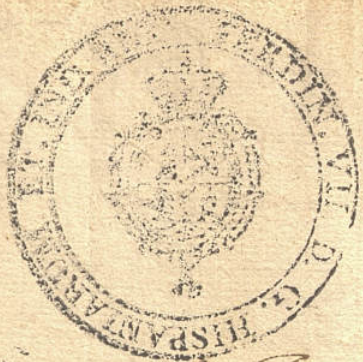 FERDIN. VII D. G. HISPANIARUM ET IND. REX